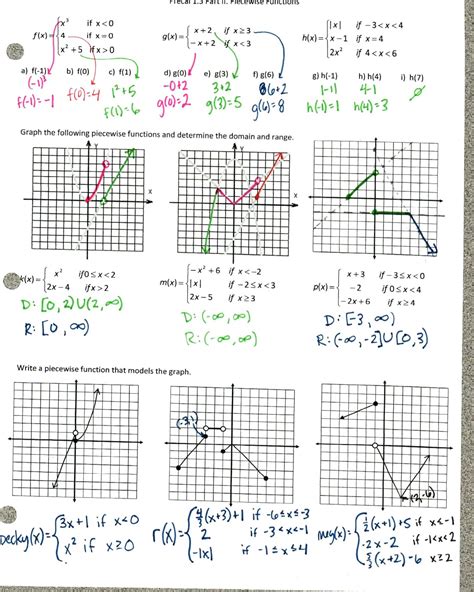 Precal 1.3 Part II: Piecewise Functions
f(x)= { x³ if x < 0
4 if x = 0
x² + 5 if x > 0
g(x)= { x + 2, if x ≥ 3
-x + 2, if x < 3
h(x)= { |x| if -3 < x < 4
x - 1 if x = 4
2x² if 4 < x < 6
a) f(-1) b) f(0) c) f(1) d) g(0) e) g(3) f) g(6) g) h(-1) h) h(4) i) h(7)
(-1)³
f(-1) = -1
f(0) = 4
1² + 5
f(1) = 6
-0+2
g(0) = 2
3+2
g(3) = 5
6+2
g(6) = 8
|-1|
h(-1) = 1
4-1
h(4) = 3
Ø
Graph the following piecewise functions and determine the domain and range.
Y
X
Y
X
k(x)= { x² if 0 ≤ x < 2
2x - 4 if x > 2
D: [0, 2) U (2, ∞)
R: [0, ∞)
m(x)= { -x² + 6 if x < -2
|x| if -2 ≤ x < 3
2x - 5 if x ≥ 3
D: (-∞, ∞)
R: (-∞, ∞)
p(x)= { x + 3 if -3 ≤ x < 0
-2 if 0 ≤ x < 4
-2x + 6 if x ≥ 4
D: [-3, ∞)
R: (-∞, -2] U [0, 3)
Write a piecewise function that models the graph.
(-3,1)
(2,-6)
Decky(x) = { 3x+1 if x<0
x² if x≥0
r(x) = { 4/3(x+3)+1 if -6≤x≤-3
2 if -3<x<-1
-|x| if -1≤x≤4
1/2(x+1)+5 if x<-1
-2x-2 if -1<x<2
5/3(x+2)-6 x≥2